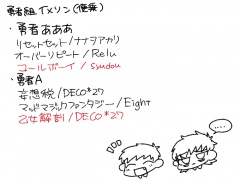 勇者組 イメソン(便乗)
・勇者あああ
リセットセット/ナナヲアカリ
オーバーリピート/Relu
コールボーイ/syudou
・勇者A
妄想税/DECO*27
マッドマジックファンタジー/Eight
乙女解剖/DECO*27
...